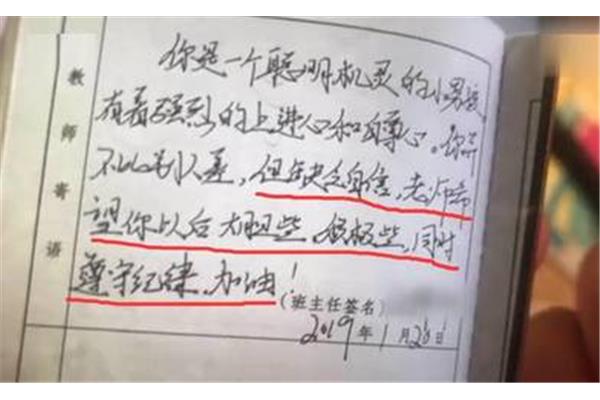 教师寄语
你是一个聪明机灵的小男孩
有着强烈的上进心和自尊心。你并
不比别人差,但缺乏自信,老师希
望你以后大胆些、积极些,同时
遵守纪律,加油!
(班主任签名)
2019年1月20日